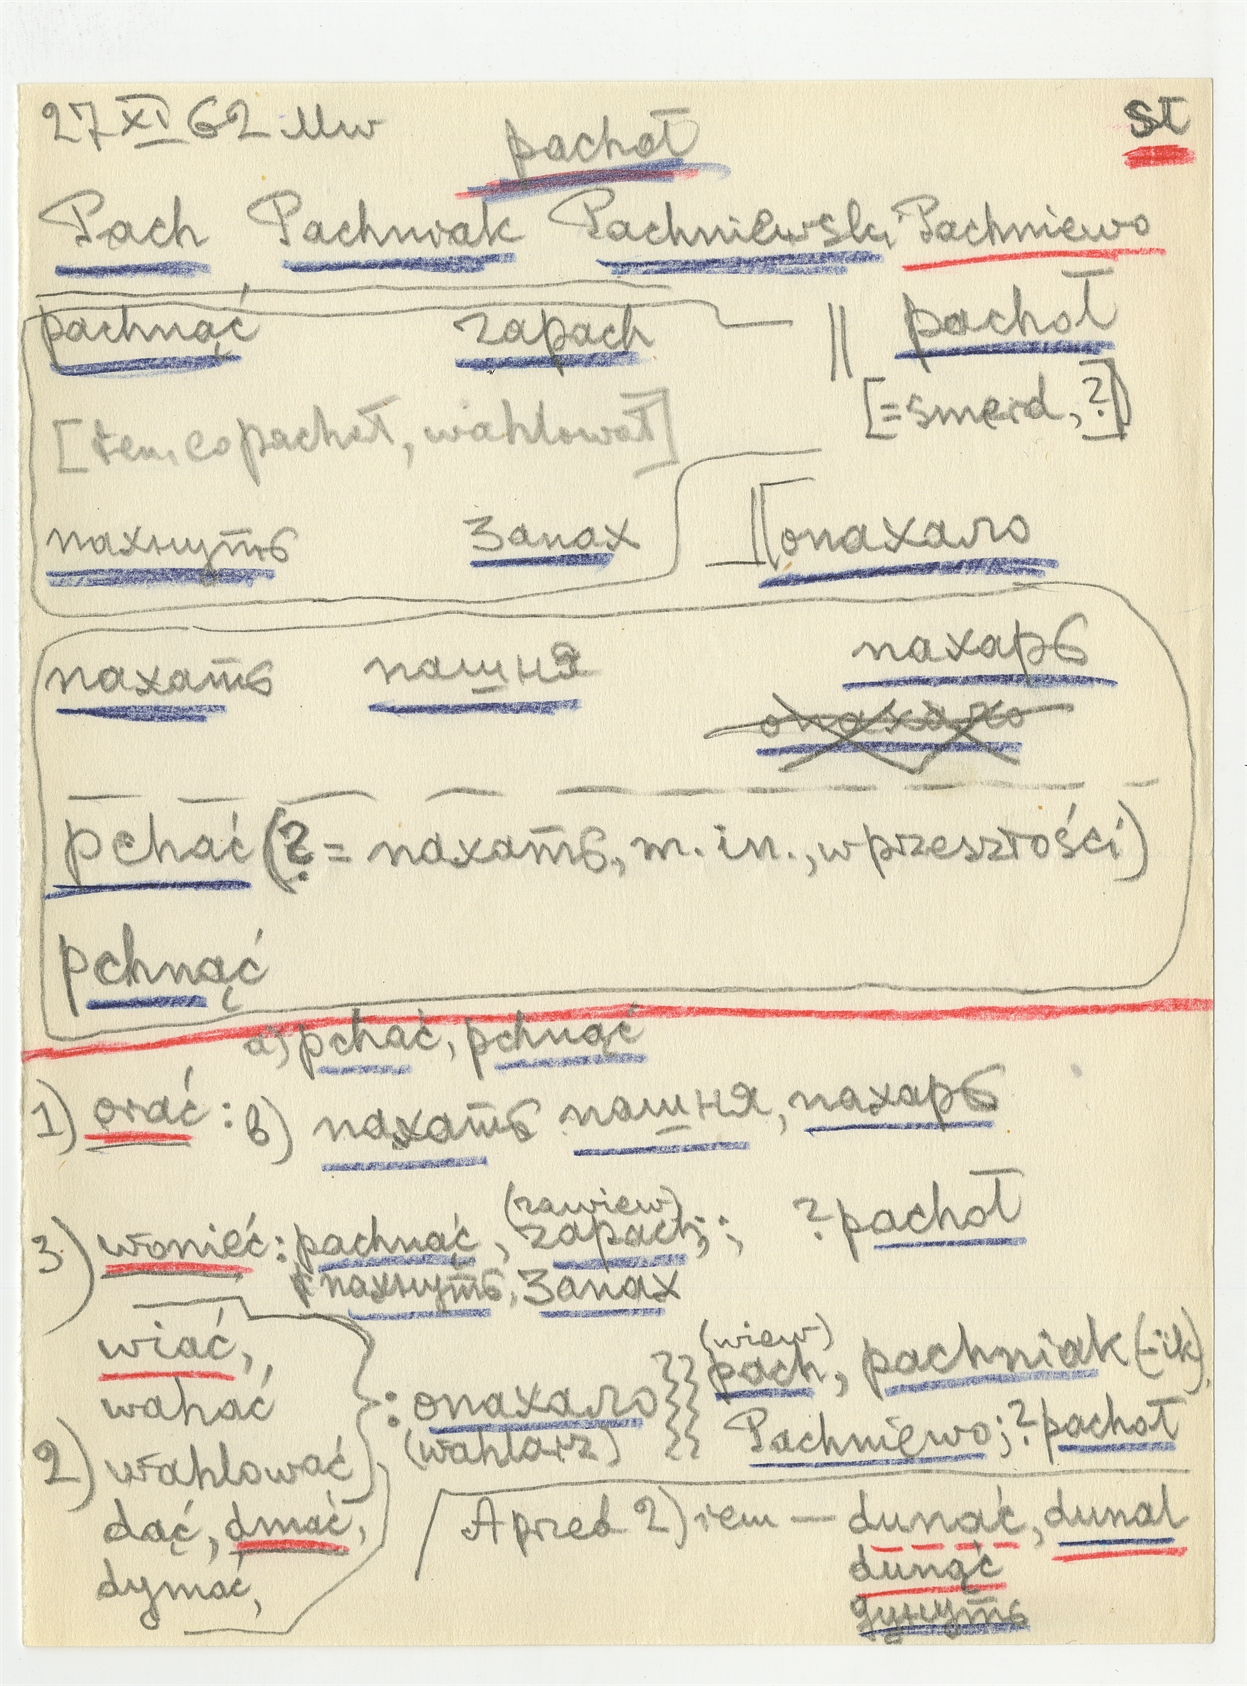 27 XI 62 Mw
st
pachoł
Pach Pachniak Pachniewski Pachniewo
pachnąć zapach || pachoł
[=smerd, ?]
[ten, co pachał, wahlował]
пахнуть запах || опахало
пахать пашня пахарь
опахало
pchać (? = пахать, m. in., w przeszłości)
pchnąć
a) pchać, pchnąć
1) orać: b) пахать пашня, пахарь
(zawiew)
3) wonieć: pachnąć, zapach; ; ? pachoł
пахнуть, запах
wiać,
(wiew)
wahać : опахало pach, pachniak (-ik),
2) wahlować (wahlarz) Pachniewo; ? pachoł
dąć, dmać, A przed 2) rem — dunąć, dunal
dymać, dunąć
дунуть